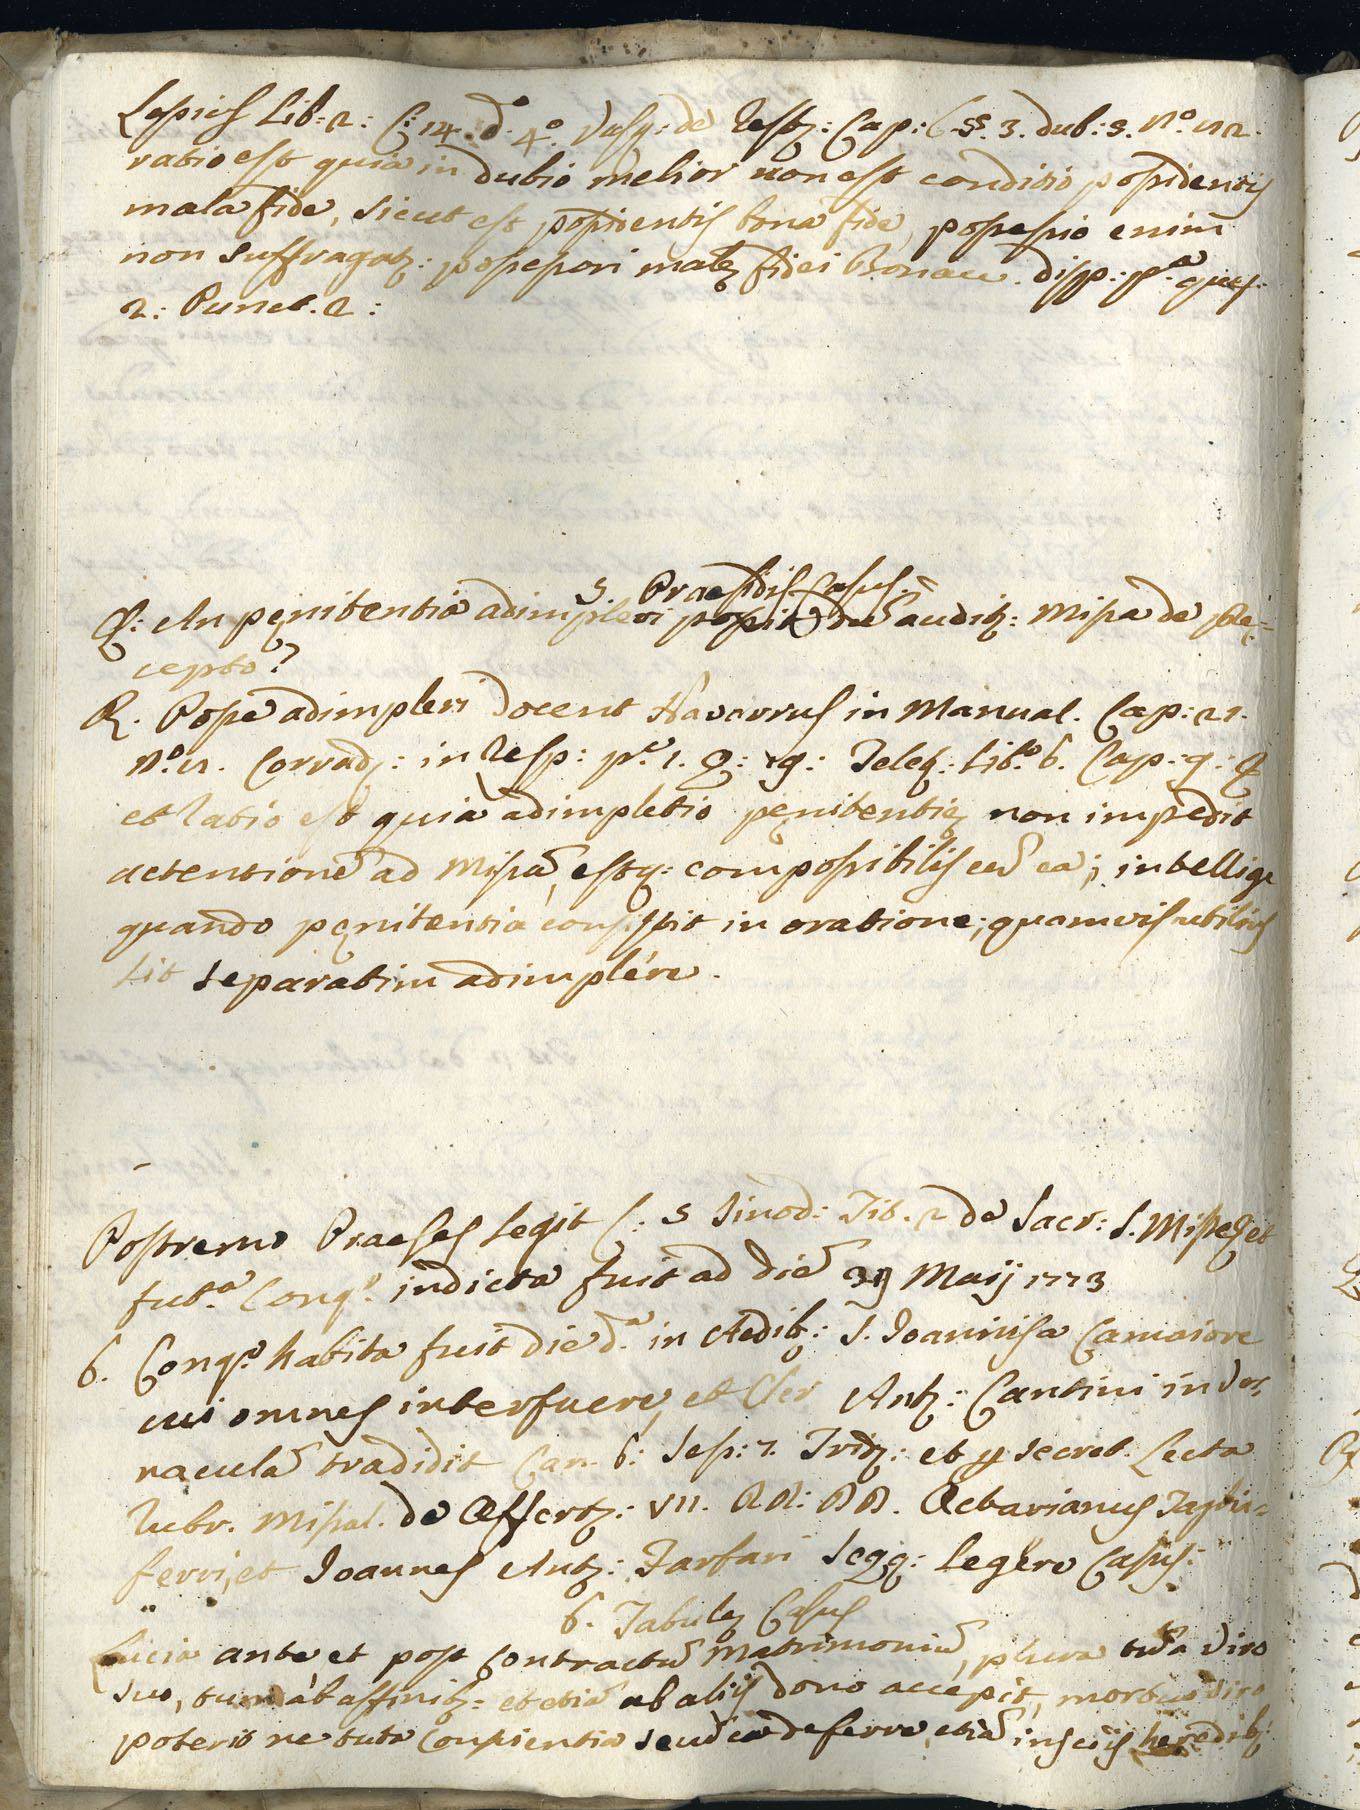 Lessius Lib: 2: C: 14. d.° 4.° Vasq: de Restq: Cap: 6 §§. 3. dub: 2. N.° 12.
ratio est quia in dubio melior non est conditio possidentis
mala fide, sicut est possidentis bona fide, possessio enim
non suffragatq: possessori malę fidei Bonac. disp: p.a ques:
2: Punct. 2:
5. Praesidis Casus.
Q: An pęnitentia adimpleri possit dũ auditq: Missa de prę=
cepto?
R. Posse adimpleri docent Navarrus in Manual. Cap: 21.
N.° Corradq: in Resp: p.e 1. Q: Lib.° 6. Cap:
et ratio est quia adimpletio pęnitentię non impedit
attentionẽ ad Missã, estq: compossibilis cũ ea; intellige
quando pęnitentia consistit in oratione; quamvis utilius
sit separatim adimplere.
Postremo Praeses legit C: 5 Sinod: Tit. 2 de Sacr: S. Missę et
fut.a Cong.° indicta fuit ad diẽ Maij 1773
6. Cong.° habita fuit die d.a in Aedibq: S. Joannis a Camaiore
cui omnes interfuere, et Cler Antq: Cantini in ver
naculã tradidit Can. 6: Sess: 7. Tridq: et secret. Lecta
Rubr. Missal. de Offertq: VII. RR: DD. Octavianus Tapbi=
ferri, et Joannes Antq: Farfari seqq: legere Casus:
6. Tabulę Casus
Lucia ante et post contractũ Matrimoniũ, plura tũ a viro
suo, tum ab affinibq: et etiã ab aliis dono accepit, mortuo viro
poterit ne tuta conscientia secũ ea deferre, etiã insciis heredibq: